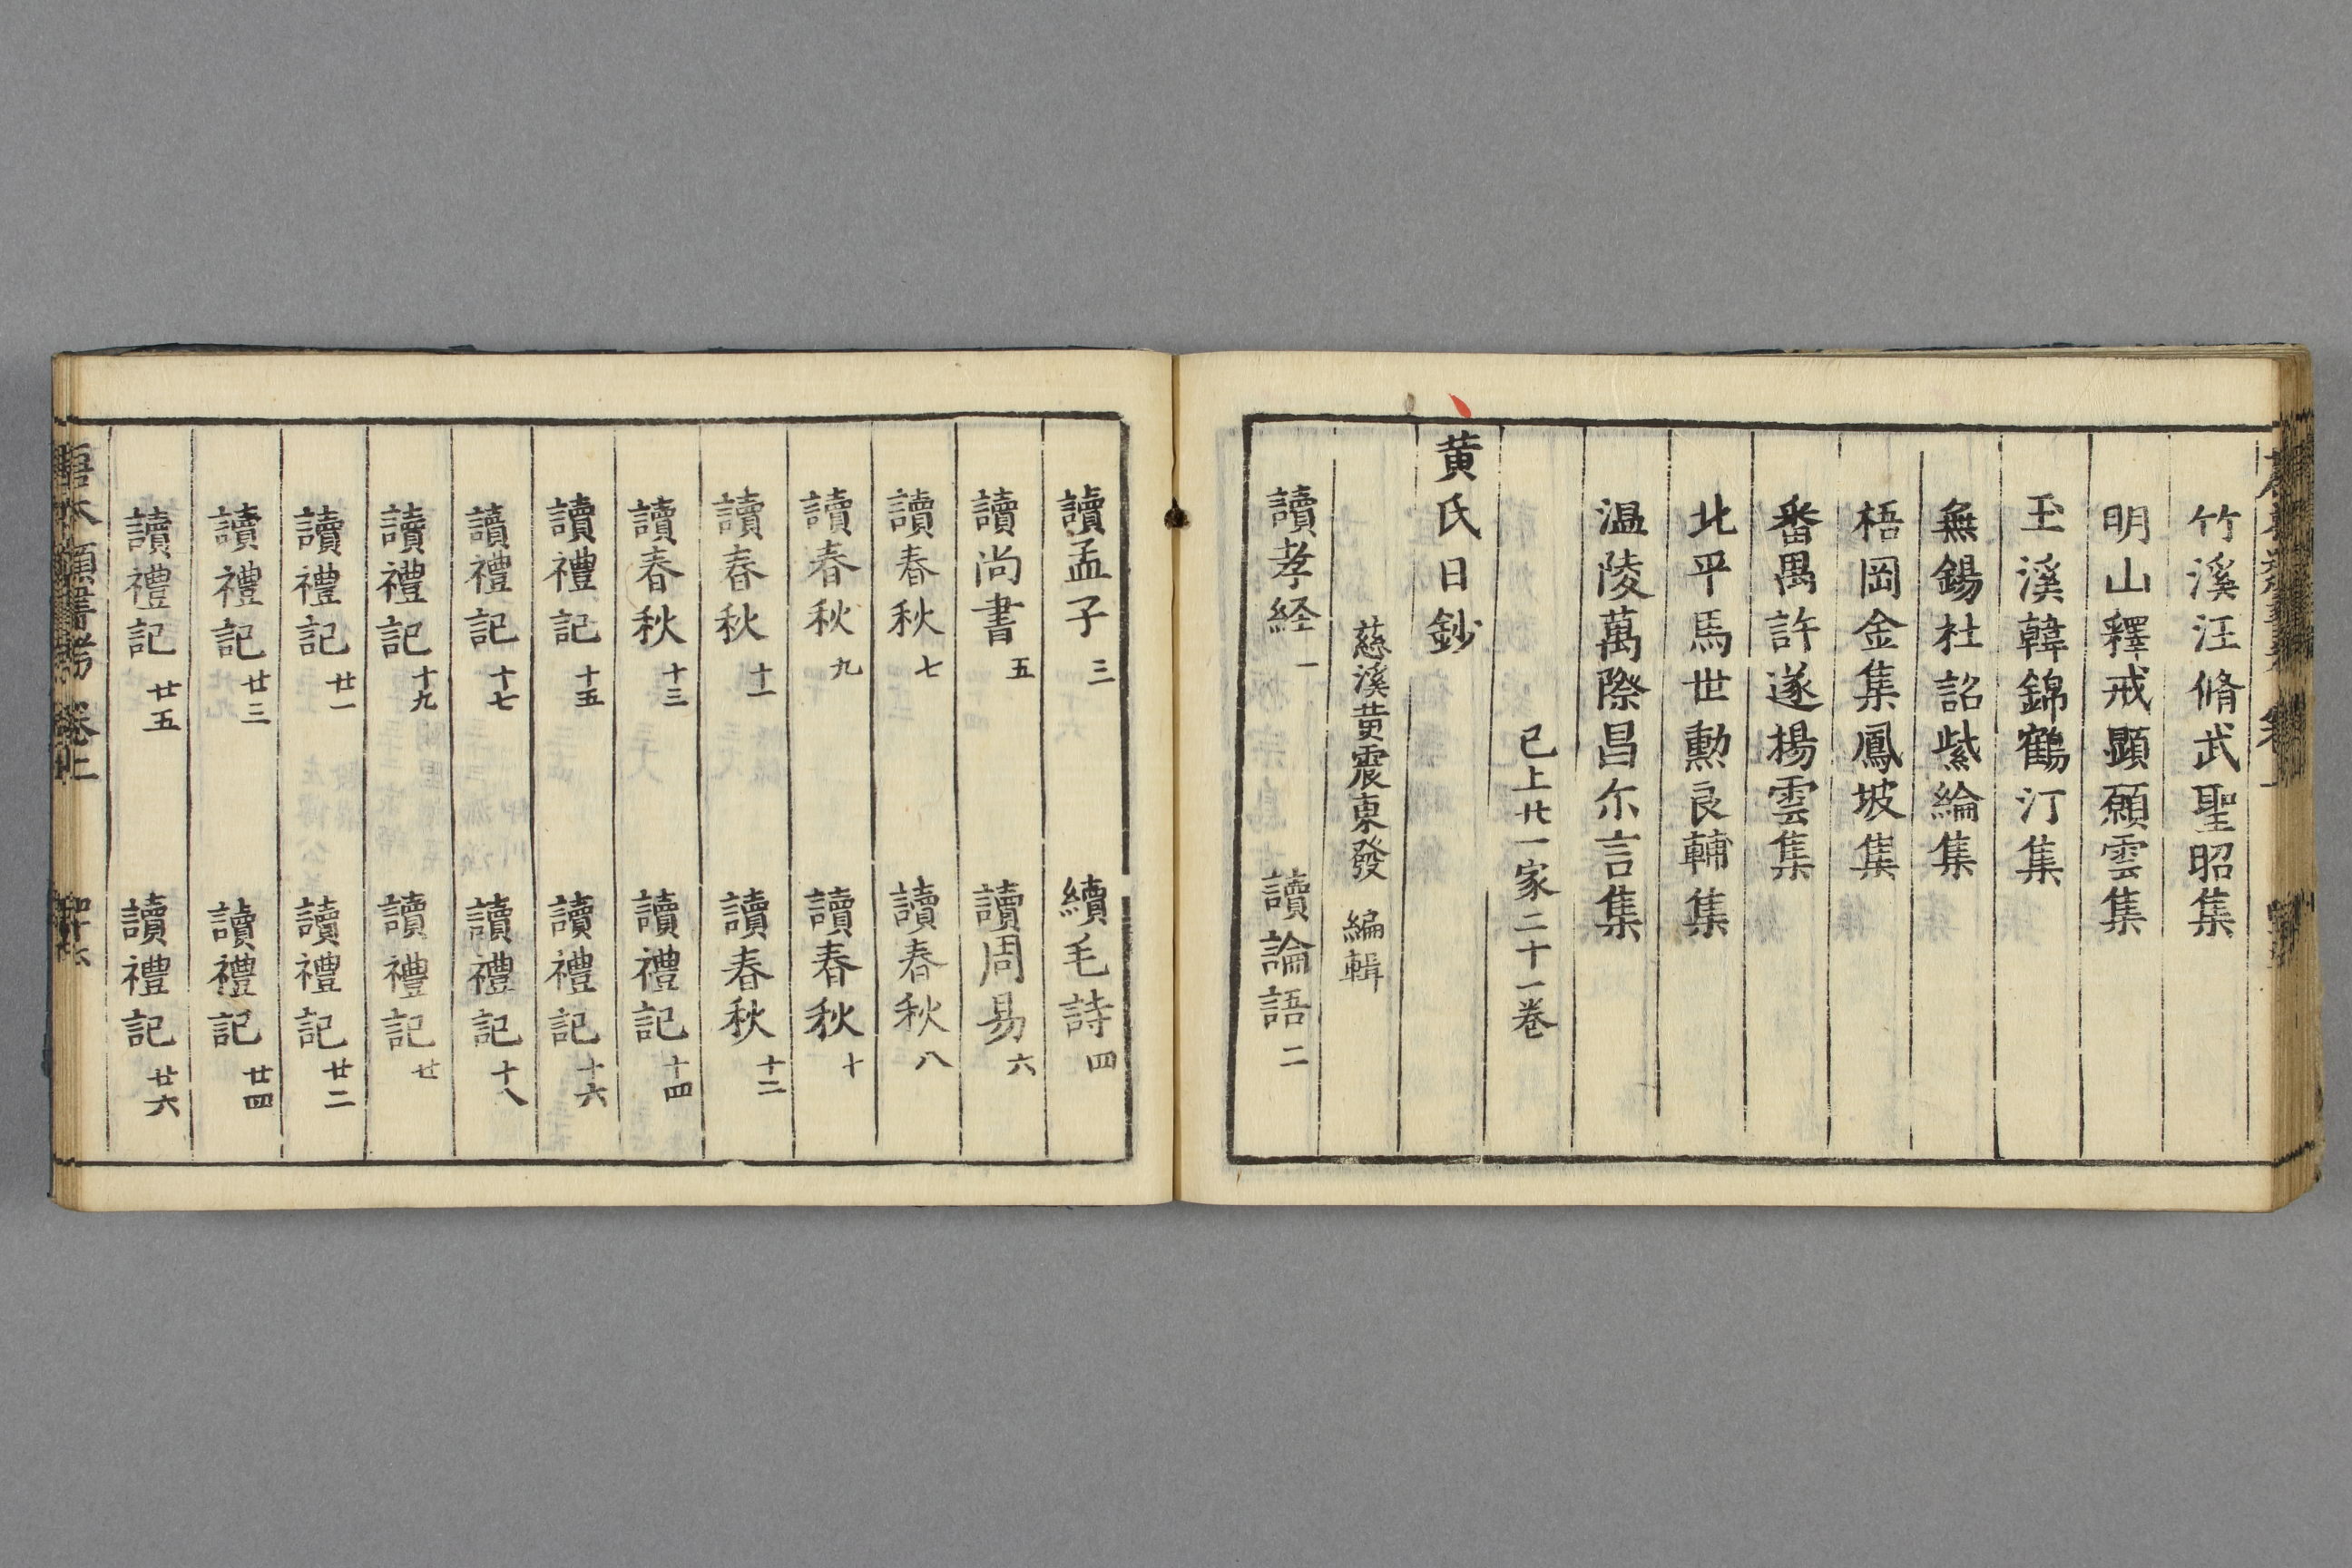 竹溪汪脩武聖昭集
明山釋戒顕願雲集
玉溪韓錦鶴汀集
無錫杜詔紫綸集
梧岡金集鳳坡集
番禺許遂揚雲集
北平馬世勲良輔集
温陵萬際昌尓言集
已上廿一家二十一巻
黄氏日鈔
慈溪黄震東發 編輯
讀孝経一 讀論語二
讀孟子三 續毛詩四
讀尚書五 讀周易六
讀春秋七 讀春秋八
讀春秋九 讀春秋十
讀春秋十一 讀春秋十二
讀春秋十三 讀禮記十四
讀禮記十五 讀禮記十六
讀禮記十七 讀禮記十八
讀禮記十九 讀禮記廿
讀禮記廿一 讀禮記廿二
讀禮記廿三 讀禮記廿四
讀禮記廿五 讀禮記廿六